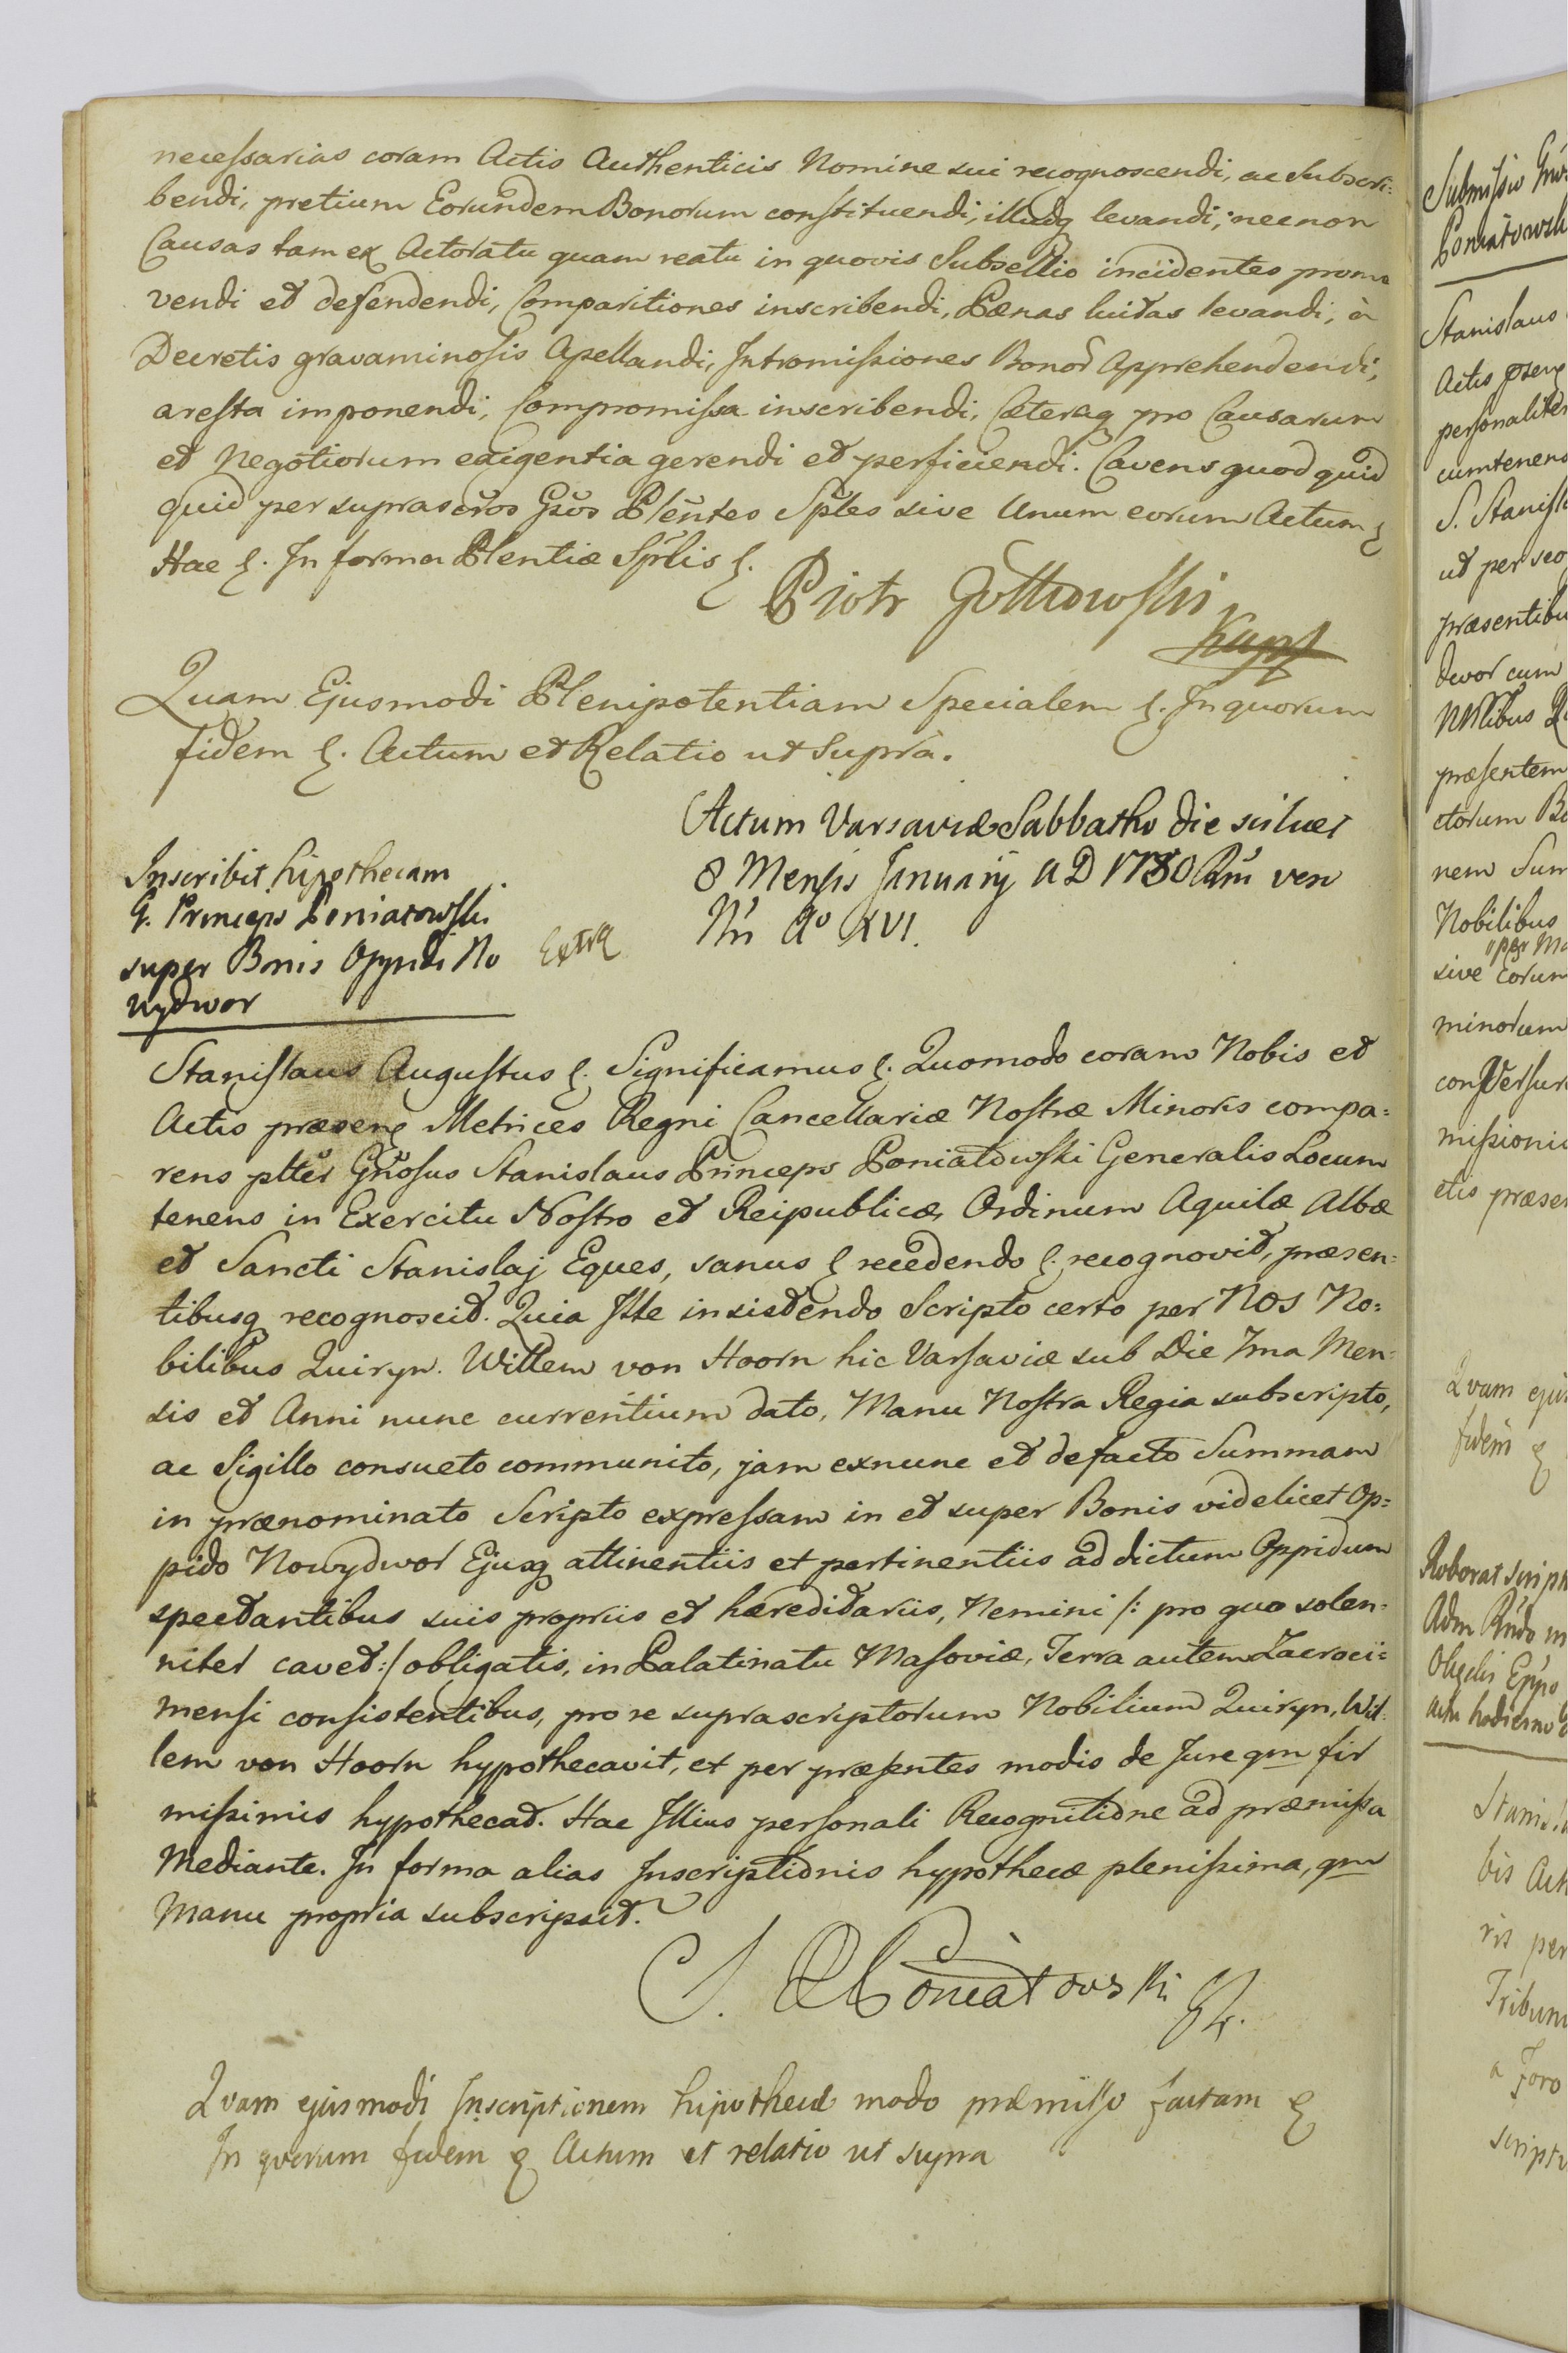 necessarias coram Actis Authenticis Nomine sui recognoscendi, ac Subscri:
bendi, pretium Eorundem Bonorum constituendi, illudq levandi, necnon
Causas tam ex Actoratu quam reatu in quovis Subsellio incidentes promo
vendi et defendendi, Comparitiones inscribendi, Pænas luitas levandi, à
Decretis gravaminosis Apellandi, Intromissiones Bonor Apprehendendi,
aresta imponendi, Compromissa inscribendi, Cæteraq pro Causarum
et Negotiorum exigentia gerendi et perficiendi. Cavens quod quid
quid per suprascros Gsos Plentes Sples sive Unum eorum Actum
Hac. In forma Plentiæ Splis
Piotr
Quam Ejusmodi Plenipotentiam Specialem. In quorum
fidem. Actum et Relatio ut Supra.
Actum Varsaviæ Sabbatho die scilicet
8 Mensis January A D 1780 ven
Aº XVI.
Inscribit hipothecam
G. Princeps Poniatowski
super Bonis Oppidi No
wydwor
Extra
Stanislaus Augustus. Significamus. Quomodo coram Nobis et
Actis præsen Metrices Regni Cancellariæ Nostræ Minoris compa:
rens plter Gnosus Stanislaus Princeps Poniatowski Generalis Locum
tenens in Exercitu Nostro et Reipublicæ, Ordinum Aquilæ Albæ
et Sancti Stanislaj Eques, sanus recedendo recognovit, præsen:
tibusq recognoscit. Quia Ille insistendo Scripto certo per Nos No:
bilibus Quiryn. Willem von Hoorn hic Varsaviæ sub Die 7ma Men:
sis et Anni nunc currentium dato, Manu Nostra Regia subscripto,
ac Sigillo consueto communito, jam exnunc et defacto Summam
in prænominato Scripto expressam in et super Bonis videlicet Op:
pido Nowydwor Ejusq attinentiis et pertinentiis ad dictum Oppidum
spectantibus suis propriis et hæreditariis, Nemini /: pro quo solen:
niter cavet :/ obligatis, in Palatinatu Masoviæ, Terra autem Zacroci:
mensi consistentibus, pro re suprascriptorum Nobilium Quiryn, Wil:
lem von Hoorn hypothecavit, et per præsentes modis de Jure qm fir
missimis hypothecat. Hac Illius personali Recognitione ad præmissa
Mediante. In forma alias Inscriptionis hypothecæ plenissima, qm
Manu propria subscripsit.
S. Poniatowski
Qvam ejusmodi Inscriptionem hipothecæ modo præmisso factam
In qvorum fidem Actum et relatio ut supra
Submissio
Poniatowsk
Stanislaus
Actis
personaliter
cumtenens
S. Stanisl
ut per
præsentibu
dwor cum
præsentem
ctorum Bo
nem Sum
Nobilibus
per
sive Eorum
minorum
missionis
etis præsen
Qvam eju
fidem
Roborat script
hodierno
Stanisl
bis Act
ris per
Tribun
a Foro
script